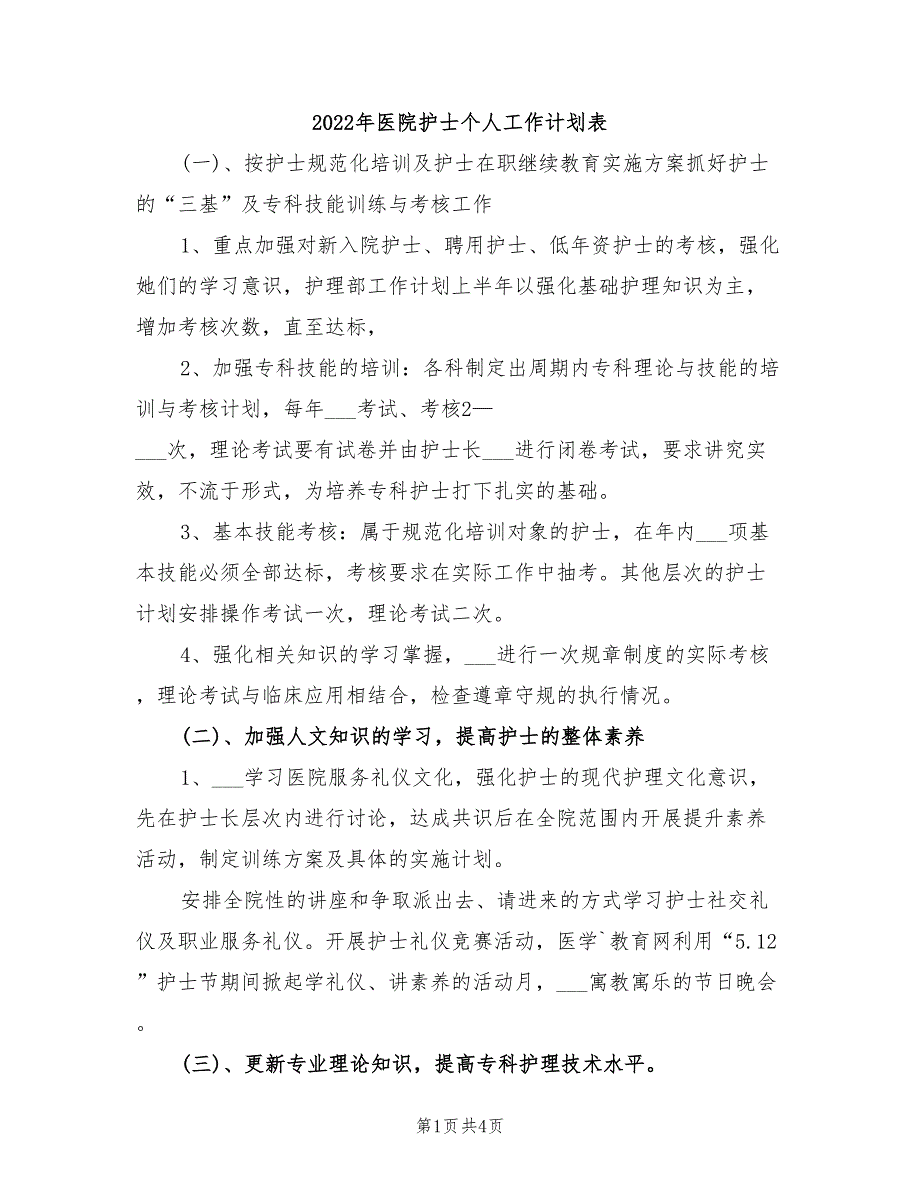 2022年医院护士个人工作计划表
(一)、按护士规范化培训及护士在职继续教育实施方案抓好护士
的“三基”及专科技能训练与考核工作
1、重点加强对新入院护士、聘用护士、低年资护士的考核，强化
她们的学习意识，护理部工作计划上半年以强化基础护理知识为主，
增加考核次数，直至达标，
2、加强专科技能的培训：各科制定出周期内专科理论与技能的培
训与考核计划，每年___考试、考核2—
___次，理论考试要有试卷并由护士长___进行闭卷考试，要求讲究实
效，不流于形式，为培养专科护士打下扎实的基础。
3、基本技能考核：属于规范化培训对象的护士，在年内___项基
本技能必须全部达标，考核要求在实际工作中抽考。其他层次的护士
计划安排操作考试一次，理论考试二次。
4、强化相关知识的学习掌握，___进行一次规章制度的实际考核
，理论考试与临床应用相结合，检查遵章守规的执行情况。
(二)、加强人文知识的学习，提高护士的整体素养
1、___学习医院服务礼仪文化，强化护士的现代护理文化意识，
先在护士长层次内进行讨论，达成共识后在全院范围内开展提升素养
活动，制定训练方案及具体的实施计划。
安排全院性的讲座和争取派出去、请进来的方式学习护士社交礼
仪及职业服务礼仪。开展护士礼仪竞赛活动，医学`教育网利用“5.12
”护士节期间掀起学礼仪、讲素养的活动月，___寓教寓乐的节日晚会
。
(三)、更新专业理论知识，提高专科护理技术水平。
第1页共4页